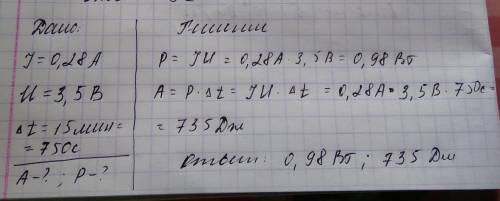 Дано:
I = 0,28 А
U = 3,5 В
Δt = 15 мин =
= 750с
А - ? ; Р - ?
Решение
P = IU = 0,28А · 3,5 В = 0,98 Вт
A = P · Δt = IU · Δt = 0,28А · 3,5 В · 750с =
= 735 Дж
Ответ: 0,98 Вт ; 735 Дж